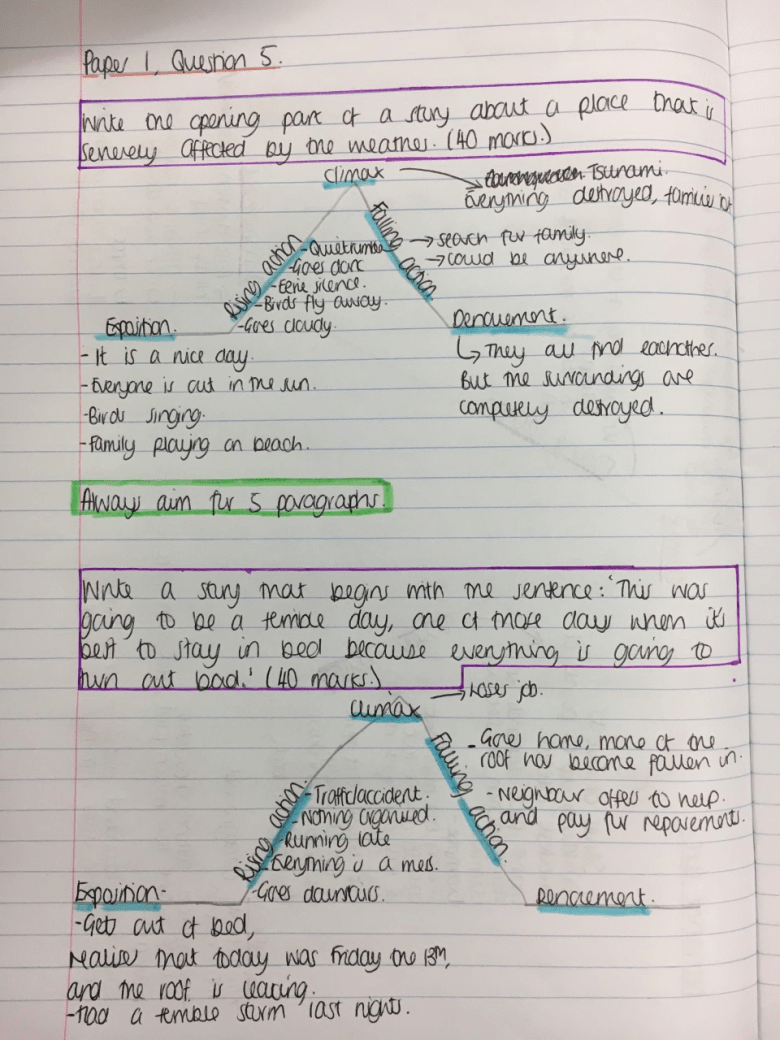 Paper 1, Question 5.
Write the opening part of a story about a place that is
severely affected by the weather. (40 marks.)
Climax
Tsunami.
Everything destroyed, families
Rising action
- Quiet
- Goes dark
- Eerie silence.
- Birds fly away.
- Goes cloudy.
Falling action
→ search for family.
→ could be anywhere.
Exposition.
- It is a nice day.
- Everyone is out in the sun.
- Birds singing.
- Family playing on beach.
Denouement.
They all find eachother.
But the surroundings are
completely destroyed.
Always aim for 5 paragraphs.
Write a story that begins with the sentence: 'This was
going to be a terrible day, one of those days when it's
best to stay in bed because everything is going to
turn out bad.' (40 marks.)
Climax
→ Loses job.
Rising action
- Traffic/accident.
- Nothing organised.
- Running late
- Everything is a mess.
- Goes downstairs.
Falling action.
- Goes home, more of the
roof has become fallen in.
- Neighbour offers to help.
and pay for repavement.
Exposition-
- Gets out of bed,
realise that today was Friday the 13th,
and the roof is leaking.
- Had a terrible storm last night.
Denouement.